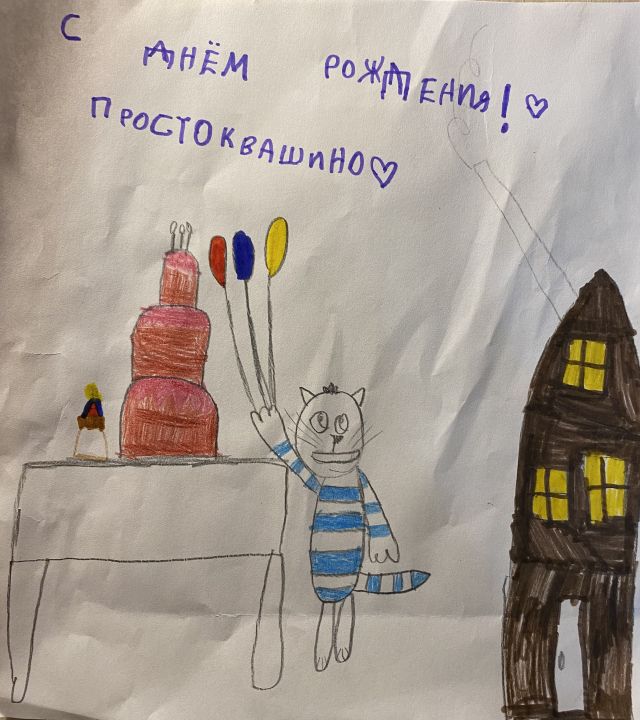 С ДНЁМ РОЖДЕНИЯ!♡
ПРОСТОКВАШИНО♡